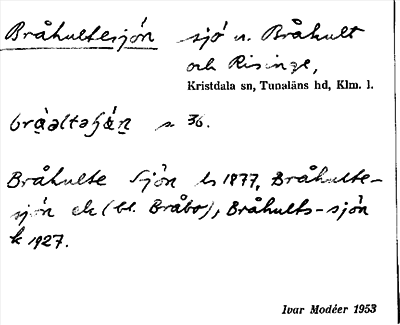 Bråhultesjön sjö n. Bråhult
och Risinge,
Kristdala sn, Tunaläns hd, Klm. l.
s 36.
Bråhulte Sjön ls 1877, Bråhulte-
sjön ek (bl. Bråbo), Bråhults-sjön
k 1927.
Ivar Modéer 1953